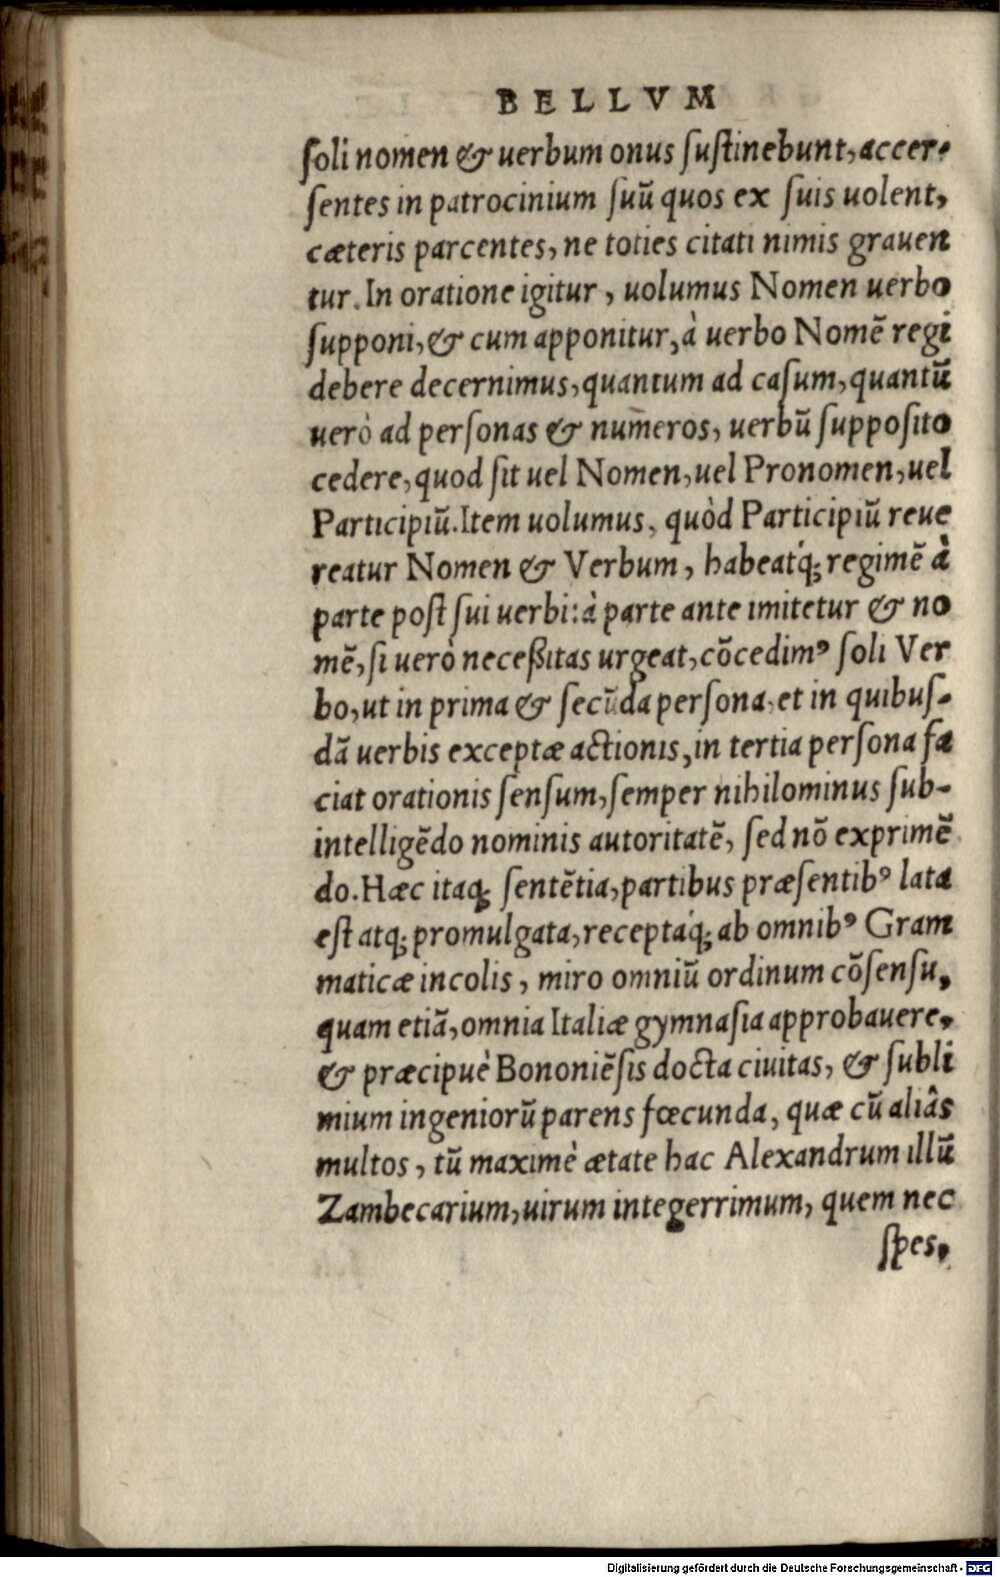 BELLVM
ſoli nomen & uerbum onus ſuſtinebunt, accer-
ſentes in patrocinium ſuũ quos ex ſuis uolent,
cæteris parcentes, ne toties citati nimis grauen
tur. In oratione igitur, uolumus Nomen uerbo
ſupponi, & cum apponitur, à uerbo Nomẽ regi
debere decernimus, quantum ad caſum, quantũ
uerò ad perſonas & numeros, uerbũ ſuppoſito
cedere, quod ſit uel Nomen, uel Pronomen, uel
Participiũ. Item uolumus, quòd Participiũ reue
reatur Nomen & Verbum, habeatq́; regimẽ à
parte poſt ſui uerbi: à parte ante imitetur & no
mẽ, ſi uerò neceßitas urgeat, cõcedimꝰ ſoli Ver
bo, ut in prima & ſecũda perſona, et in quibuſ-
dã uerbis exceptæ actionis, in tertia perſona fa
ciat orationis ſenſum, ſemper nihilominus ſub-
intelligẽdo nominis autoritatẽ, ſed nõ exprimẽ
do. Hæc itaq; ſentẽtia, partibus præſentibꝰ lata
eſt atq; promulgata, receptaq́; ab omnibꝰ Gram
maticæ incolis, miro omniũ ordinum cõſenſu,
quam etiã, omnia Italiæ gymnaſia approbauere,
& præcipuè Bononiẽſis docta ciuitas, & ſubli
mium ingeniorũ parens fœcunda, quæ cũ aliâs
multos, tũ maximè ætate hac Alexandrum illũ
Zambecarium, uirum integerrimum, quem nec
ſpes,
Digitalisierung gefördert durch die Deutsche Forschungsgemeinschaft - DFG